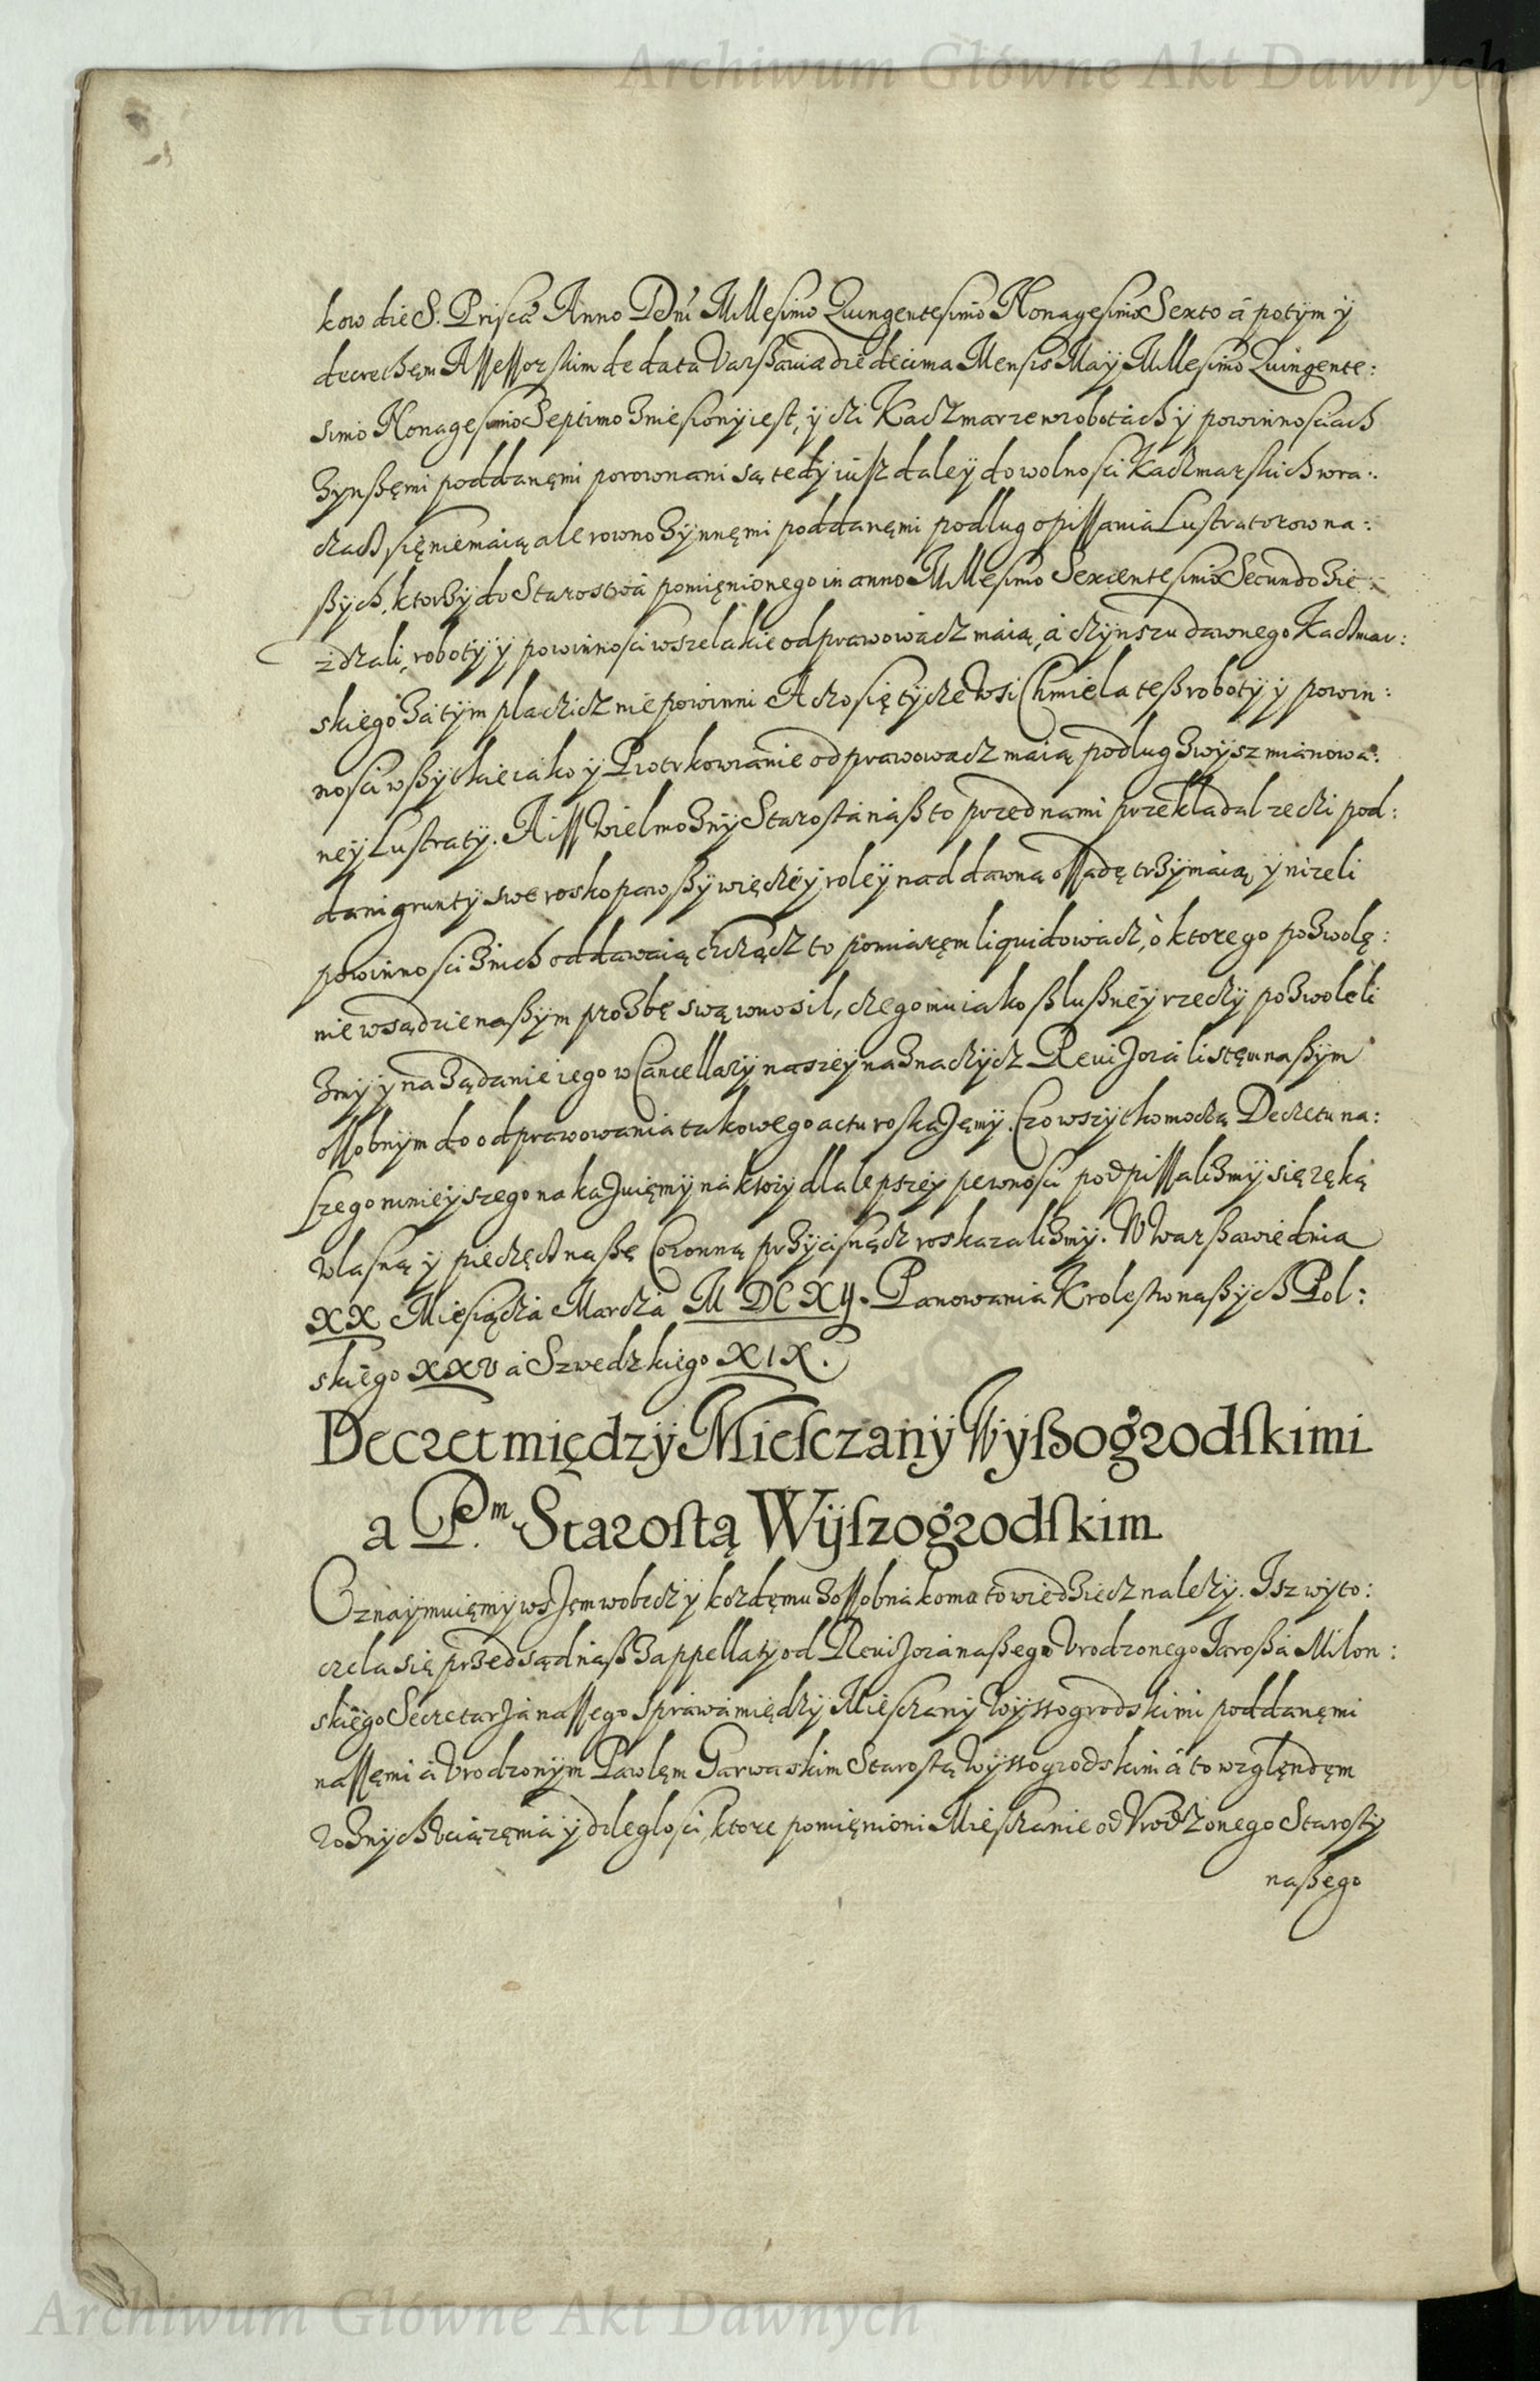 Archiwum Główne Akt Dawnych
kow die S. Prisca Anno Dni Millesimo Quingentesimo Nonagesimo Sexto á potym ÿ
decrethem Assessorskim de data Varßavia die decima Mensis Maÿ Millesimo Quingente:
simo Nonagesimo Septimo zniesionÿ iest, ÿ czi Kaczmarze w robotach ÿ powinnosciach
zynßemi poddanęmi porownani są tedÿ iusz daleÿ do wolnosci Kaczmarskich wra:
czacz się nie maią ale rowno zynnęmi poddanęmi podlug opissania Lustratorow na:
ßÿch, ktorzÿ do Starostwa pomięnionego in anno Millesimo Sexcentesimo Secundo zie:
zdzali, robotÿ ÿ powinnosci wszelakie odprawowacz maią, á czÿnszu dawnego Kaczmar:
skiego zá tÿm placzicz nie powinni A czo się tÿcze wsi Chmiela teß robotÿ ÿ powin:
nosci wßÿtkie iako ÿ Piotrkowianie odprawowacz maią podlug zwÿsz mianowa:
neÿ Lustratÿ. A iss Wielmoznÿ Starosta náß to przed nami przekladal ze czi pod:
dani gruntÿ swe roskopawßÿ więczeÿ roleÿ nad dawną ossadę trzÿmaią ÿ nizeli
powinnosci z nich oddawaią chcząc to pomiaręm liquidowacz, o ktorego pozwolę:
nie w sądzie naßÿm prozbę swą wnosil, czego mu iako slußneÿ rzeczÿ pozwoleli
zmÿ ÿ na ządanie iego w Cancellarÿ naszeÿ naznaczÿcz Revizora listęm naßÿm
ossobnÿm do odprawowania takowego actu roskazęmÿ. Czo wszÿtko moczą Decretu na:
szego ninieÿszego nakazuięmÿ na ktorÿ dla lepszeÿ pewnosci podpissalizmÿ się ręką
wlasną ÿ pieczęcz naßę Coronną przÿcisnącz roskazalizmÿ. W Warßawie dnia
XX Miesiącza Marcza M DC XIJ. Panowania Krolestw naßÿch Pol:
skiego XXV á Szwedzkiego XIX.
Decret międzÿ Miesczanÿ Wÿßogrodskimi
a P.m Starostą Wÿszogrodskim
Oznaÿmuięmÿ wszęm wobecz ÿ kozdęmu zossobna komu to wiedziecz nalezÿ. Isz wÿto:
czela się przed sąd naß z appellatÿ od Revizora naßego Urodzonego Jaroßa Milon:
skiego Secretarza nassego sprawa międzÿ Miesczanÿ Wÿssogrodskimi poddanęmi
nassęmi á Urodzonÿm Pawlęm Garwaskim Starostą Wÿssogrodskim á to względęm
roznÿch uciązęnia ÿ dolegliosci, ktore pomięnioni Miesczanie od Urodzonego Starostÿ
naßego
Archiwum Główne Akt Dawnych